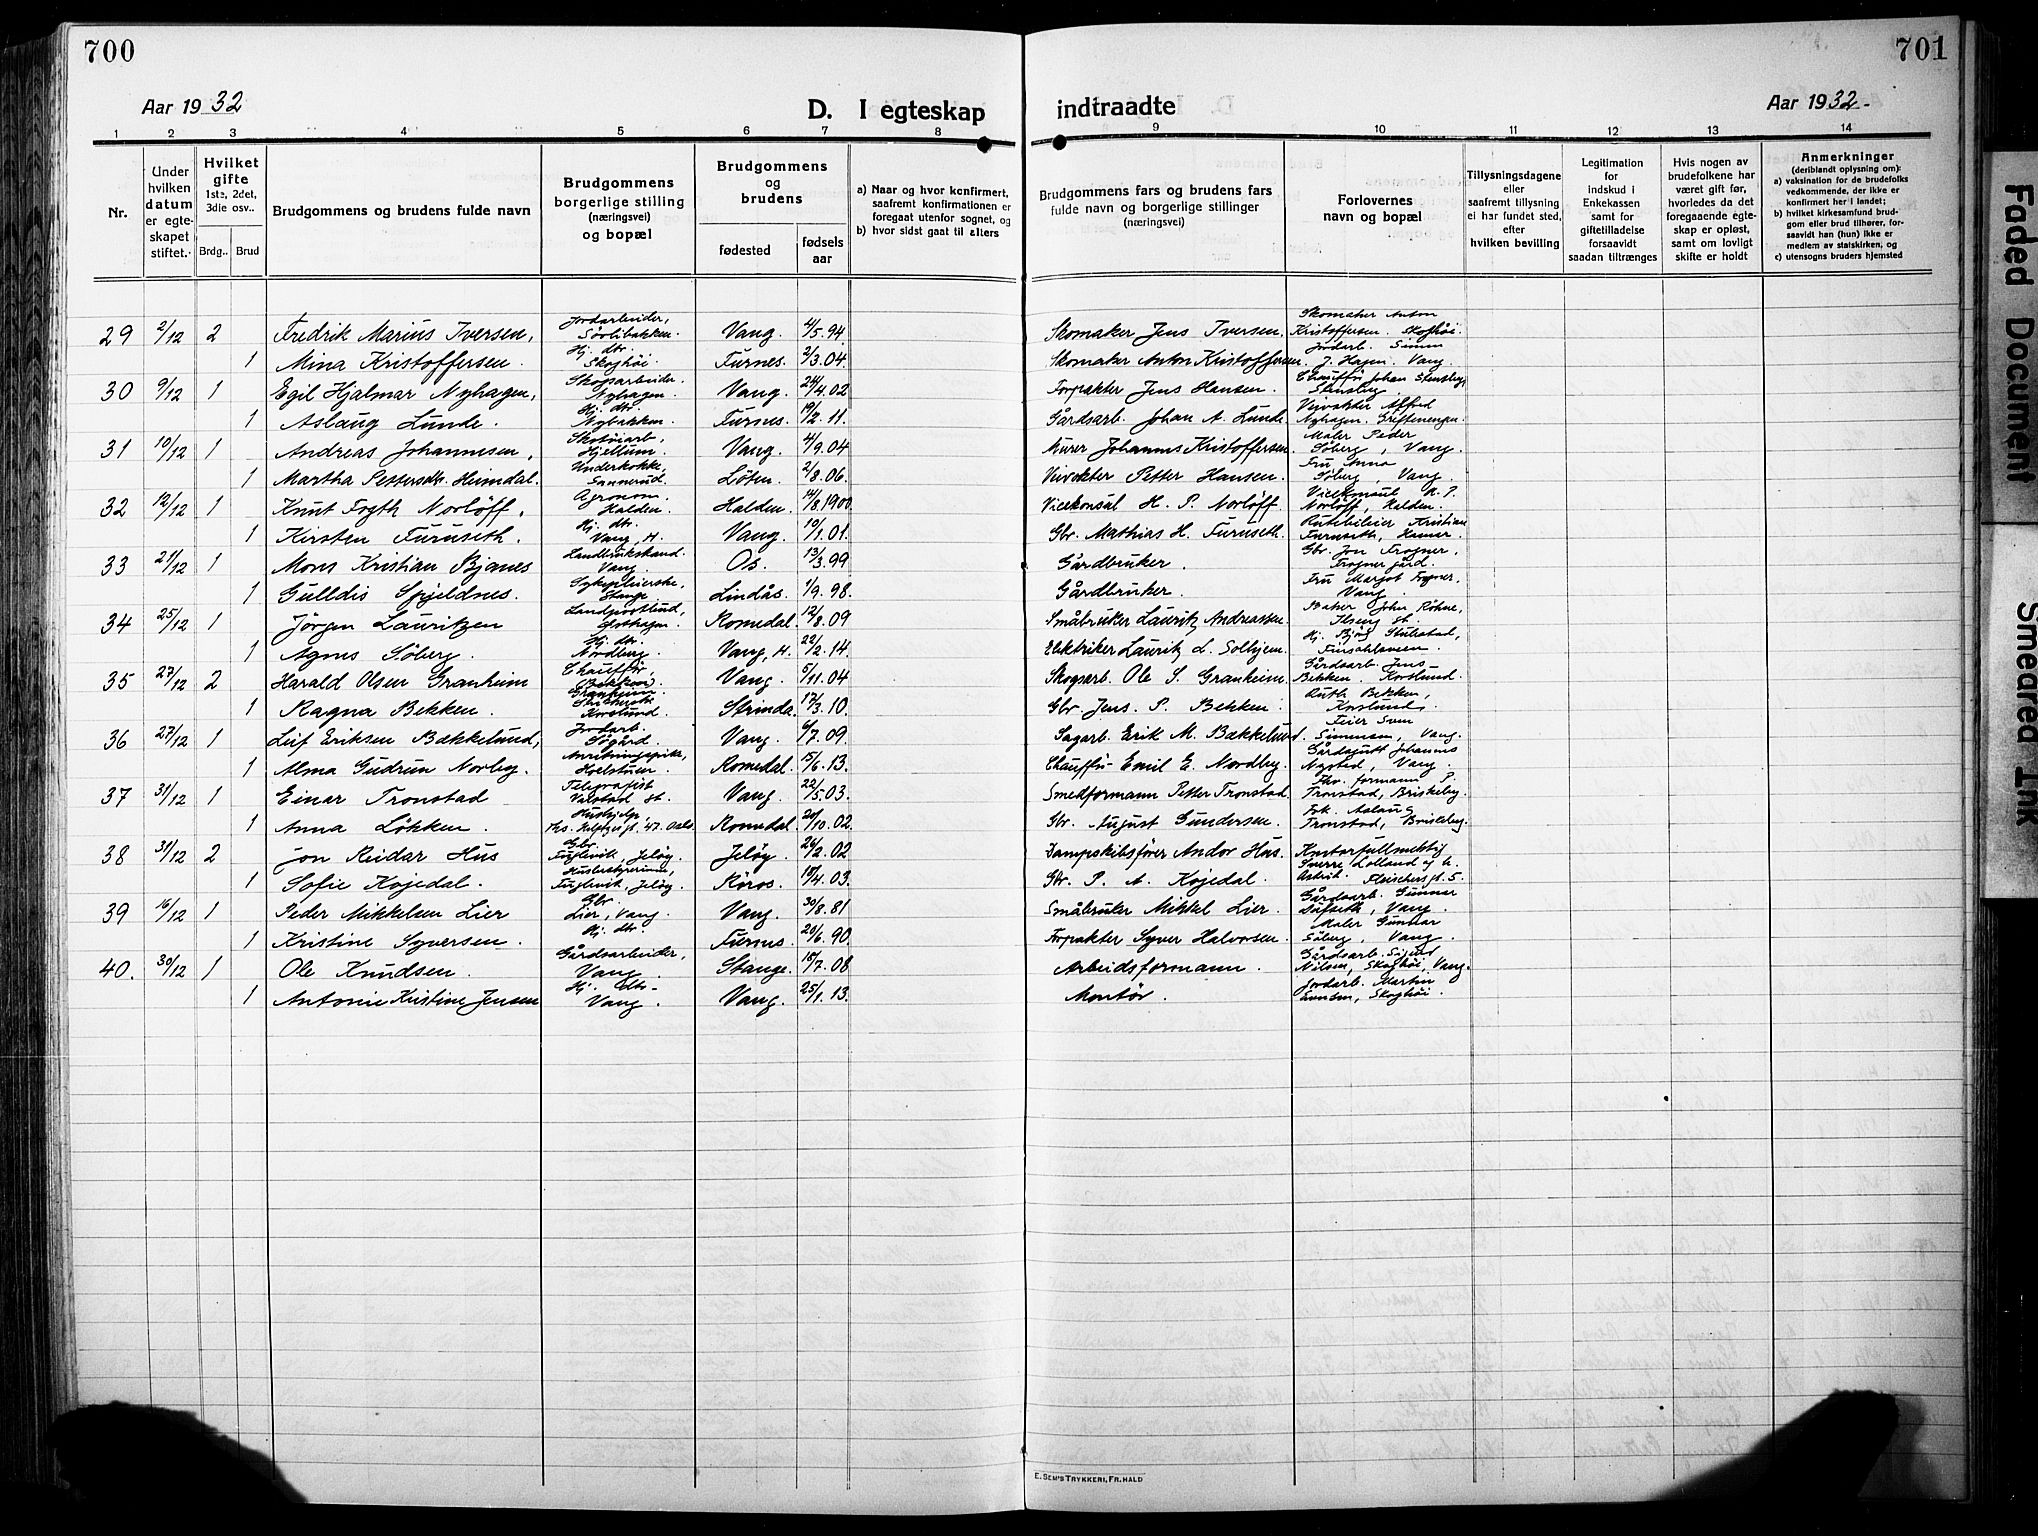 700
701
Aar 1932
D. I egteskap
indtraadte
Aar 1932-
1 2 3 4 5 6 7 8 9 10 11 12 13 14
Nr.
Under hvilken datum er egteskapet stiftet.
Hvilket gifte 1ste, 2det, 3die osv..
Brdg.. Brud
Brudgommens og brudens fulde navn
Brudgommens borgerlige stilling (næringsvei) og bopæl
Brudgommens og brudens
fødested
fødsels aar
a) Naar og hvor konfirmert, saafremt konfirmationen er foregaat utenfor sognet, og
b) hvor sidst gaat til alters
Brudgommens fars og brudens fars fulde navn og borgerlige stillinger (næringsvei)
Forlovernes navn og bopæl
Tillysningsdagene eller saafremt tillysning ei har fundet sted, efter hvilken bevilling
Legitimation for indskud i Enkekassen samt for giftetilladelse forsaavidt saadan tiltrænges
Hvis nogen av brudefolkene har været gift før, hvorledes da det foregaaende egteskap er opløst, samt om lovligt skifte er holdt
Anmerkninger (deriblandt oplysning om):
a) vaksination for de brudefolks vedkommende, der ikke er konfirmert her i landet;
b) hvilket kirkesamfund brudgom eller brud tilhører, forsaavidt han (hun) ikke er medlem av statskirken, og
c) utensogns bruders hjemsted
29 2/12 2 Fredrik Marius Iversen, Jordarbeider, Sövlibakken. Vang. 4/5.94 Skomaker Jens Iversen. Skomaker Anton Kristoffersen. Skoghöi.
1 Mina Kristoffersen. Hj. dtr. Skoghöi Furnes. 2/3.04. Skomaker Anton Kristoffersen. Jordarb. Simen J. Hagen. Vang.
30 9/12 1 Egil Hjalmar Nyhagen, Skogsarbeider. Nyhagen. Vang. 24/4.02 Forpakter Jens Hansen. Chauffør Johan Stensberg, Stensberg.
1 Aslaug Lunde. Hj. dtr. Nybakken. Furnes. 19/2.11. Gårdsarb. Johan A. Lunde Veivokter Alfred Nyhagen.
31 10/12 1 Andreas Johannesen, Hjellum. Vang. 4/9.04 Murer Johannes Kristoffersen. Maler Peder Söberg, Vang.
1 Martha Pettersdtr. Heimdal. Underkokke, Sannerud. Löten. 2/8.06. Veivokter Petter Hansen. Fru Anna Söberg, Vang.
32 12/12 1 Knut Frogth Norløff. Agronom. Halden. Halden. 14/8.1900 Vicekonsul H. P. Norløff Vicekonsul H. P. Norløff, Halden.
1 Kirsten Furuseth. Hj. dtr. Vang, H. Vang. 10/1.01. Gbr. Mathias H. Furuseth. Rutebileier Kristian Furuseth, Hamar.
33 21/12 1 Mons Kristian Bjanes Landbrukskand. Vang. Os. 13/3.99 Gårdbruker. Gbr. Jon Frogner, Frogner gård.
1 Gulldis Spjeldnes. Sykepleierske, Stange. Lindås. 1/9.98. Gårdbruker. Fru Margot Frogner, Vang.
34 25/12 1 Jörgen Lauritzen Landpostbud, Romedal. 12/8.09 Småbruker Lauritz Andreassen. Baker John Röhne, Ilseng st.
1 Agnes Söberg. Hj. dtr. Nordberg. Vang, H. 22/2.14. Elektriker Lauritz L. Solhjem.
35 27/12 2 Harald Olsen Granheim Chauffør, Granheim. Vang. 5/11.04 Skogsarb. Ole S. Granheim. Gårdsarb. Jens Bekken. Korslund.
1 Ragna Bekken. Korslund. Strinda. 17/3.10. Gbr. Jens. P. Bekken. Ruth Bekken, Korslund.
36 27/12 1 Leif Eriksen Bækkelund, Jordarb. Søgård. Vang. 6/7.09. Sagarb. Erik M. Bækkelund. Feier Sven Simensen, Vang.
1 Alma Gudrun Norberg. Anretningspike, Romedal. 15/6.13. Chauffør Emil E. Nordberg. Gårdsgutt Johannes Nysted, Vang.
37 31/12 1 Einar Tronstad Telegrafist Vang. 22/5.03. Smedformann Petter Tronstad. formann P. Tronstad, Briskeby.
1 Anna Lökken. Hushjelp Ths. Heftyes gt. 47. Oslo. Romedal. 20/10.02. Gbr. August Gundersen. Frk. Aslaug Tronstad, Briskeby.
38 31/12 2 Jon Reidar Hus Gbr. Fuglevik, Jelöy. Jelöy. 26/2.02 Dampskibsfører Andor Hus. Kontorfullmektig Sverre Lolland og h.
1 Sofie Kojedal. Husbestyrerinne, Fuglevik, Jelöy. Röros. 18/4.03. Gbr. P. A. Kojedal. Astrid. Fleischersgt. 5.
39 16/12 1 Peder Mikkelsen Lier Gbr. Lier, Vang. Vang. 30/8.81 Småbruker Mikkel Lier. Gårdsarb. Gunnar Vang.
1 Kristine Syversen. Hj. dtr. Furnes. 20/6.90. Forpakter Syver Halvorsen. Maler Gunnar Söberg, Vang.
40. 30/12 1 Ole Knudsen. Gårdsarbeider, Vang. Stange. 18/7.08 Arbeidsformann. Gårdsarb. Sigurd Nilsen, Skoghöi, Vang.
1 Antonie Kristine Jensen Hj. dtr. Vang. Vang. 25/1.13. Montör. Jordarb. Martin Evensen, Skoghöi.
E. SEM'S TRYKKERI, FR.HALD
Faded Document
Smeared Ink